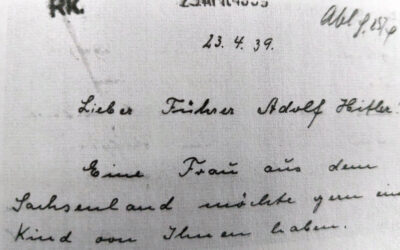 RK.
23.4.39.
Lieber Führer Adolf Hitler!
Eine Frau aus dem
Sachsenland möchte gern ein
Kind von Ihnen haben.